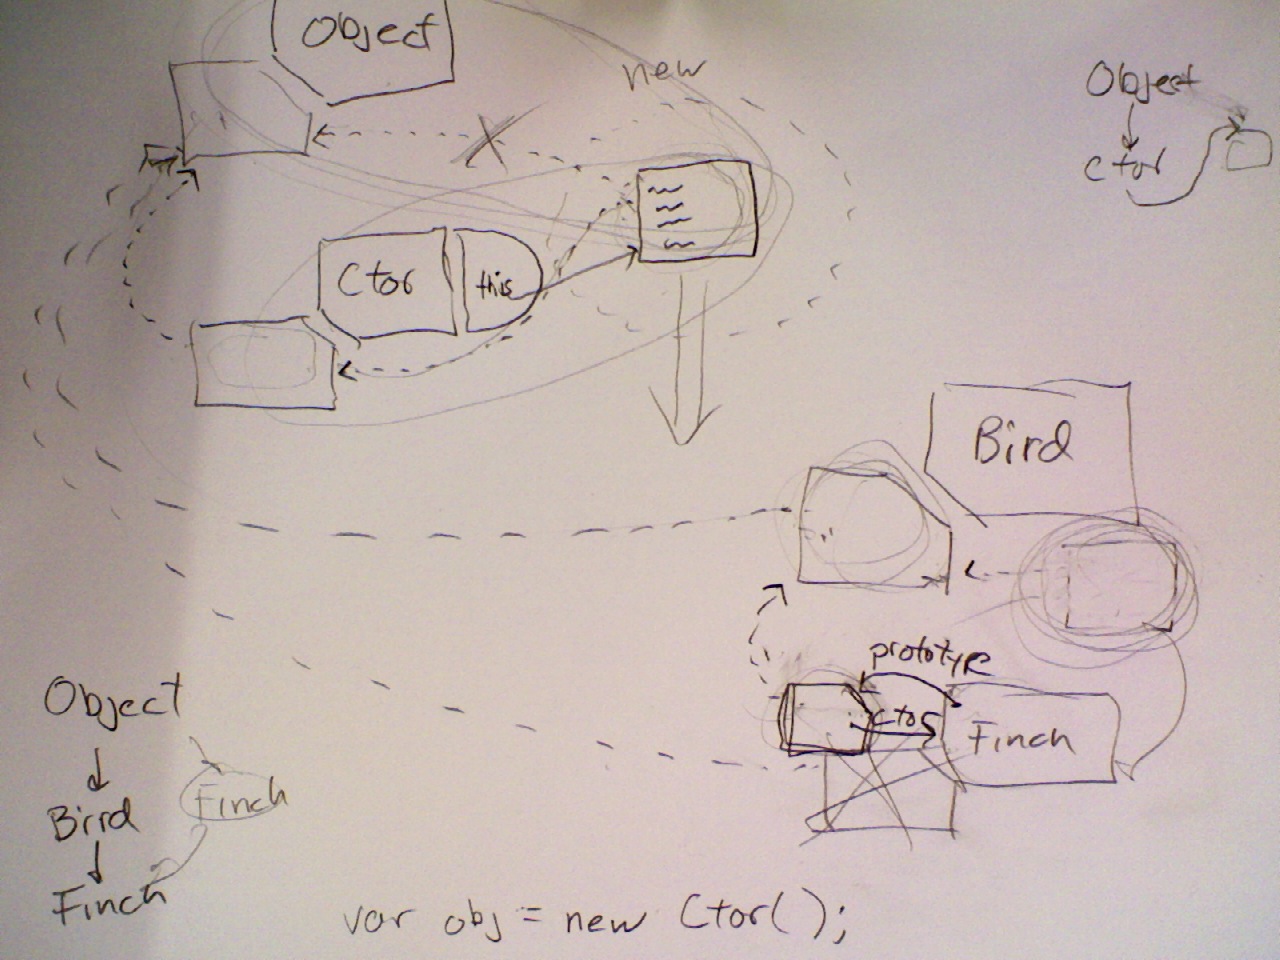 Object
new
Object
Ctor
Ctor
this
Bird
prototype
ctor
Finch
Object
Bird
Finch
Finch
var obj = new Ctor();